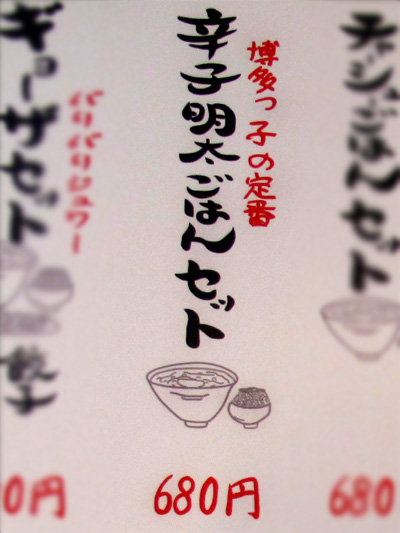 チャーシューごはんセット
680
博多っ子の定番
辛子明太ごはんセット
680円
パリパリジュワー
ギョーザセット
餃子
0円